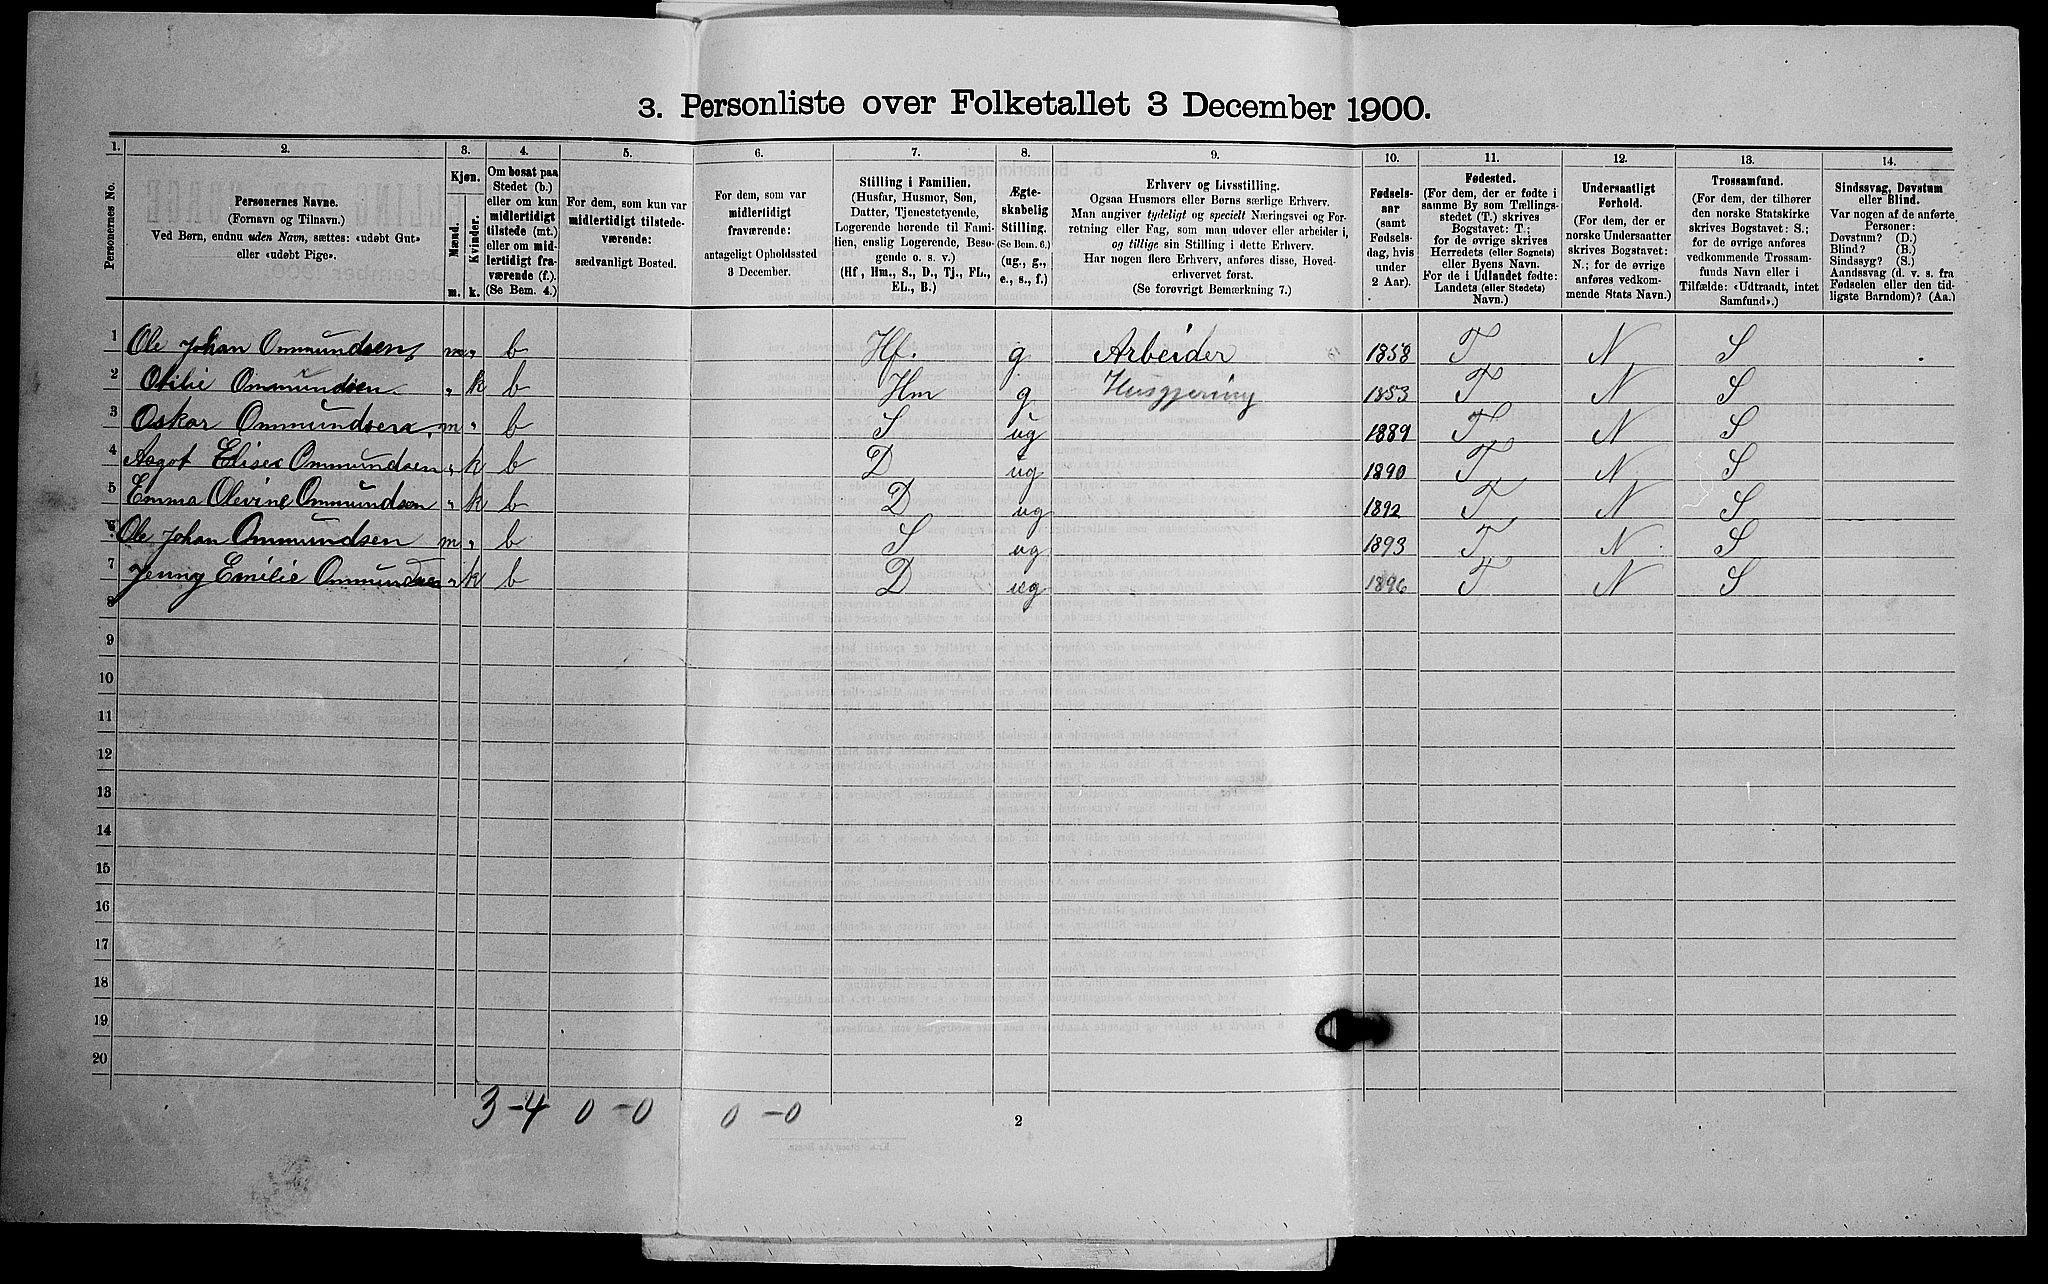 3. Personliste over Folketallet 3 December 1900.
1. 2. 3. 4. 5. 6. 7. 8. 9. 10. 11. 12. 13. 14.
Personernes No.
Personernes Navne.
(Fornavn og Tilnavn.)
Ved Børn, endnu uden Navn, sættes: «udøbt Gut»
eller «udøbt Pige».
Kjøn.
Mænd.
Kvinder.
m. k.
Om bosat paa
Stedet (b.)
eller om kun
midlertidigt
tilstede (mt.)
eller om mid-
lertidigt fra-
værende (f.).
(Se Bem. 4.)
For dem, som kun var
midlertidigt tilstede-
værende:
sædvanligt Bosted.
For dem, som var
midlertidigt
fraværende:
antageligt Opholdssted
3 December.
Stilling i Familien.
(Husfar, Husmor, Søn,
Datter, Tjenestetyende,
Logerende hørende til Fami-
lien, enslig Logerende, Besø-
gende o. s. v.)
(Hf, Hm., S., D., Tj., FL.,
EL., B.)
Ægte-
skabelig
Stilling.
(Se Bem. 6.)
(ug., g.,
e., s., f.)
Erhverv og Livsstilling.
Ogsaa Husmors eller Børns særlige Erhverv.
Man angiver tydeligt og specielt Næringsvei og For-
retning eller Fag, som man udøver eller arbeider i,
og tillige sin Stilling i dette Erhverv.
Har nogen flere Erhverv, anføres disse, Hoved-
erhvervet først.
(Se forøvrigt Bemærkning 7.)
Fødsels-
aar
(samt
Fødsels-
dag, hvis
under
2 Aar).
Fødested.
(For dem, der er fødte i
samme By som Tællings-
stedet (T.) skrives
Bogstavet: T.;
for de øvrige skrives
Herredets (eller Sognets)
eller Byens Navn.
For de i Udlandet fødte:
Landets (eller Stedets)
Navn.)
Undersaatligt
Forhold.
(For dem, der er
norske Undersaatter
skrives Bogstavet:
N.; for de øvrige
anføres vedkom-
mende Stats Navn.)
Trossamfund.
(For dem, der tilhører
den norske Statskirke
skrives Bogstavet: S.;
for de øvrige anføres
vedkommende Trossam-
funds Navn eller i
Tilfælde: «Udtraadt, intet
Samfund».)
Sindssvag, Døvstum
eller Blind.
Var nogen af de anførte
Personer:
Døvstum? (D.)
Blind? (B.)
Sindssyg? (S.)
Aandssvag (d. v. s. fra
Fødselen eller den tid-
ligste Barndom)? (Aa.)
1 Ole Johan Ommundsen m " b Hf. g Arbeider 1858 T N S
2 Otilie Ommundsen " k b Hm g Husgjerning 1853 T N S
3 Oskar Ommundsen m " b S ug 1889 T N S
4 Aagot Elise Ommundsen " k b D ug 1890 T N S
5 Emma Olevine Ommundsen " k b D ug 1892 T N S
6 Ole Johan Ommundsen m " b S ug 1893 T N S
7 Jenny Emilie Ommundsen " k b D ug 1896 T N S
8
9
10
11
12
13
14
15
16
17
18
19
20
3-4 0-0 0-0
2